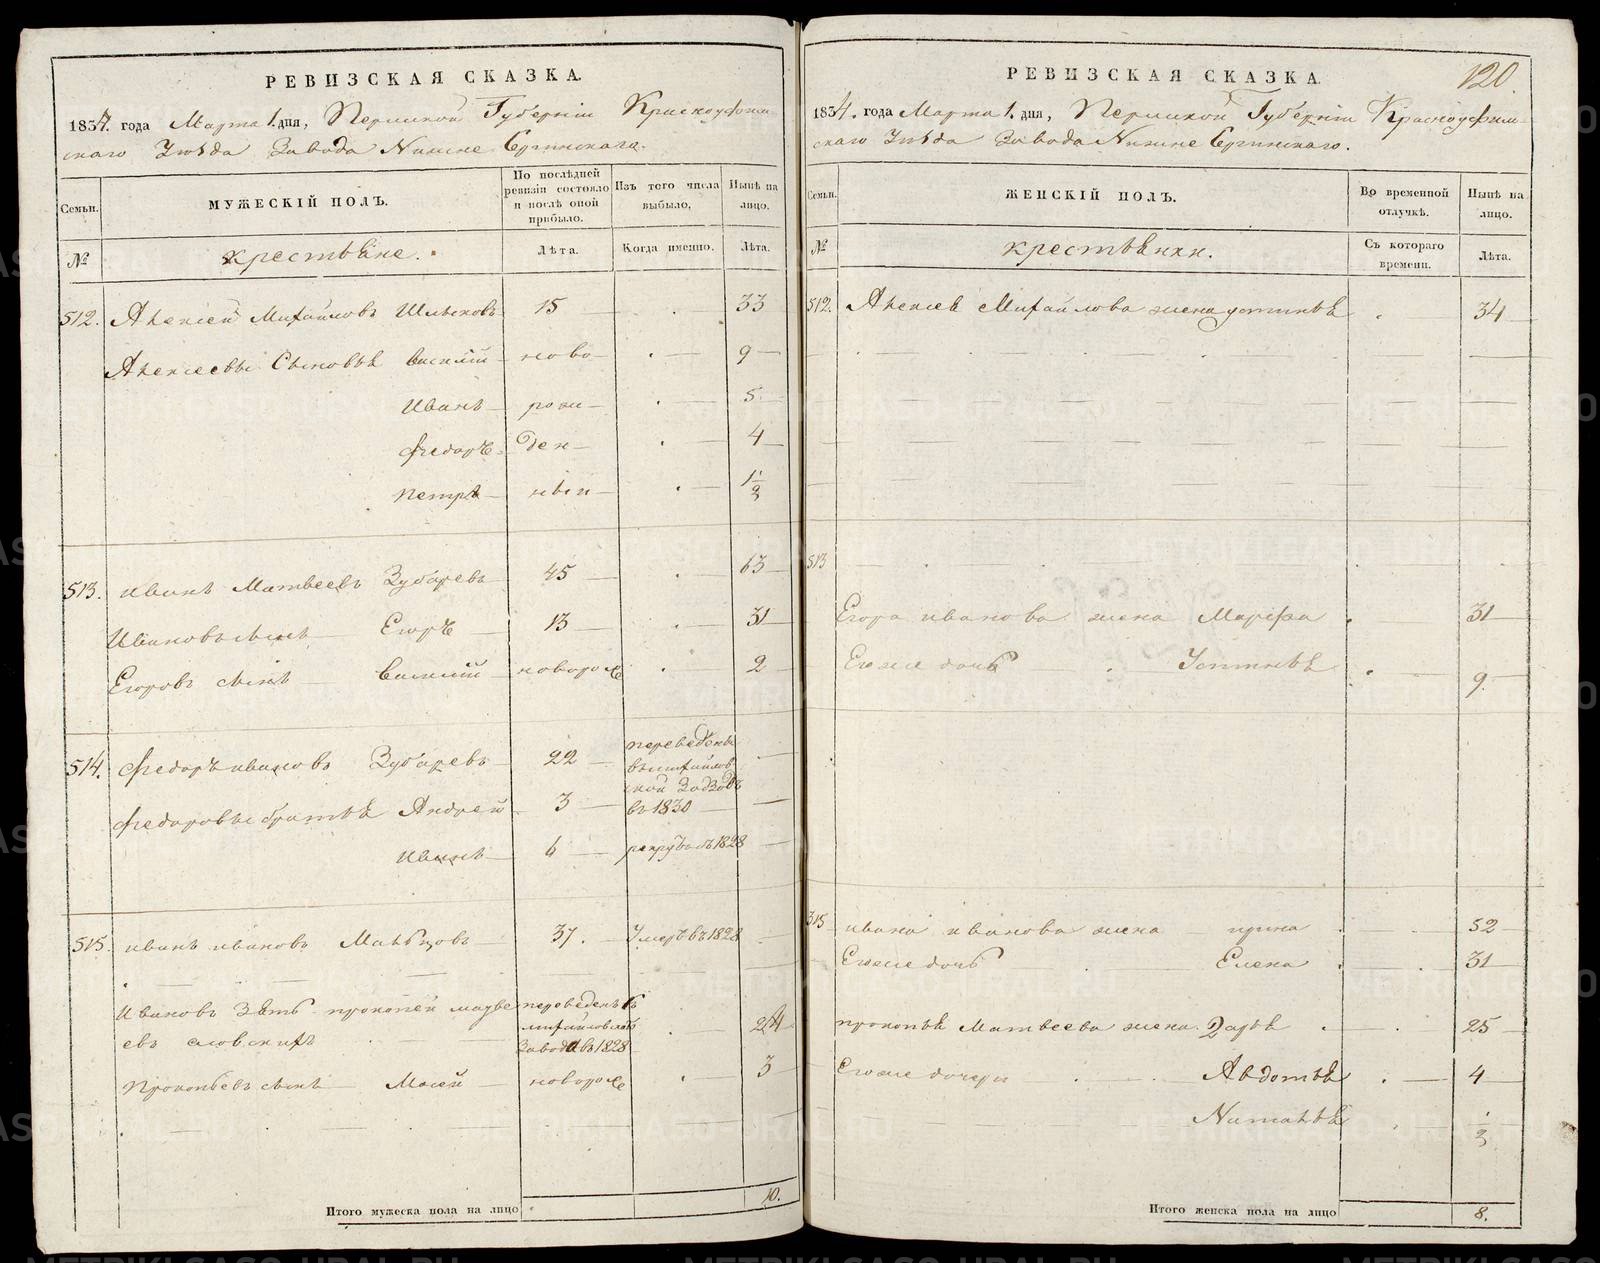 РЕВИЗСКАЯ СКАЗКА.
1834. года Марта 1. дня, Пермской Губерніи Красноуфим
скаго Уѣзда Завода Нижне Сергинскаго.
Семьи.
МУЖЕСКІЙ ПОЛЪ.
По послѣдней ревизіи состояло и послѣ оной прибыло.
Изъ того числа выбыло,
Нынѣ на лицо.
№
крестьяне.
Лѣта.
Когда именно.
Лѣта.
512. Алексей Михайловъ 15 33
Алексеевы Сыновья Василій ново 9
Иванъ рож 5
Федоръ ден 4
Петръ ныи 1/2
513. Иванъ Матвеевъ Зубаревъ 45 63
Ивановъ сынъ Егоръ 13 31
Егоровъ сынъ Василій новорож 2
514. Федоръ Ивановъ Зубаревъ 22 переведены
въ михайлов
ской заводъ
Федоровы братья Андрей 3 въ 1830
Иванъ 6 рекрут въ 1828
515. Иванъ Ивановъ Мальцовъ 37. Умеръ въ 1828
Ивановъ Зять прокопей матве переведенъ въ
михайловской 24
евъ заводъ въ 1828
Прокопьевъ сынъ Мосей новорож 3
Итого мужеска пола на лицо 10.
120.
РЕВИЗСКАЯ СКАЗКА.
1834. года Марта 1. дня, Пермской Губерніи Красноуфим
скаго Уѣзда Завода Нижне Сергинскаго.
Семьи.
ЖЕНСКІЙ ПОЛЪ.
Во временной отлучкѣ.
Нынѣ на лицо.
№
крестьянки.
Съ котораго времени.
Лѣта.
512. Алексея Михайлова жена устинья 34
513
Егора иванова жена Марфа 31
Егоже дочь Устинья 9.
515 ивана иванова жена ирина 52
Егоже дочь Елена 31
прокопья Матвеева жена Дарья 25
Егоже дочери Авдотья 4
Наталья 1/2
Итого женска пола на лицо 8.
METRIKI.GASO-URAL.RU